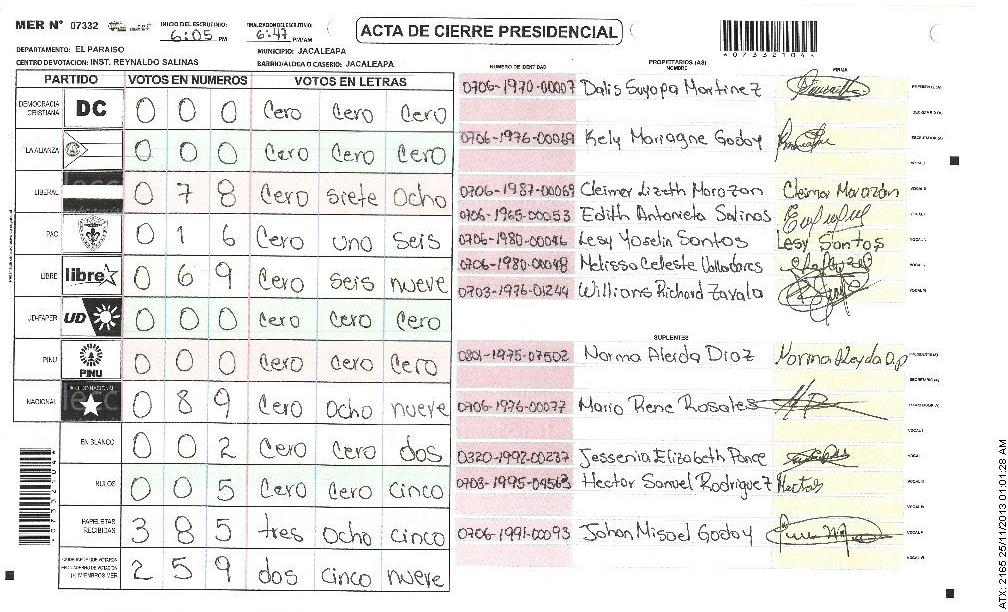 MER N° 07332
INICIO DEL ESCRUTINIO: 6:05 PM
FINALIZACION DEL ESCRUTINIO: 6:47 PM/AM
ACTA DE CIERRE PRESIDENCIAL
DEPARTAMENTO: EL PARAISO
MUNICIPIO: JACALEAPA
CENTRO DE VOTACION: INST. REYNALDO SALINAS
BARRIO/ALDEA O CASERIO: JACALEAPA
PARTIDO VOTOS EN NUMEROS VOTOS EN LETRAS
DEMOCRACIA CRISTIANA DC 0 0 0 Cero Cero Cero
LA ALIANZA 0 0 0 Cero Cero Cero
LIBERAL 0 7 8 Cero siete Ocho
PAC 0 1 6 Cero uno seis
LIBRE libre 0 6 9 Cero seis nueve
UD-FAPER UD 0 0 0 Cero Cero Cero
PINU PINU 0 0 0 Cero Cero Cero
NACIONAL 0 8 9 Cero Ocho nueve
EN BLANCO 0 0 2 Cero Cero dos
NULOS 0 0 5 Cero Cero cinco
PAPELETAS RECIBIDAS 3 8 5 tres Ocho cinco
2 5 9 dos cinco nueve
NUMERO DE IDENTIDAD
PROPIETARIOS (AS)
NOMBRE
FIRMA
0706-1970-00007 Dalis Suyapa Martinez
0706-1976-00069 Kely Mariagne Godoy
0706-1987-00069 Cleimer Lizeth Marazan Cleimar Marazán
0706-1965-00053 Edith Antonieta Salinas
0706-1980-00046 Lesy Yoselin Santos Lesy Santos
0706-1980-00048 Melissa Celeste Valladares
0703-1976-01244 Willians Richard Zavala
SUPLENTES
0801-1975-07502 Norma Aleida Diaz
0706-1976-00077 Mario Rene Rosales
0320-1992-00237 Jessenia Elizabeth Ponce
0703-1995-04563 Hector Samuel Rodriguez Hector
0706-1991-00093 Johan Misael Godoy
ATX: 2165 25/11/2013 01:01:28 AM